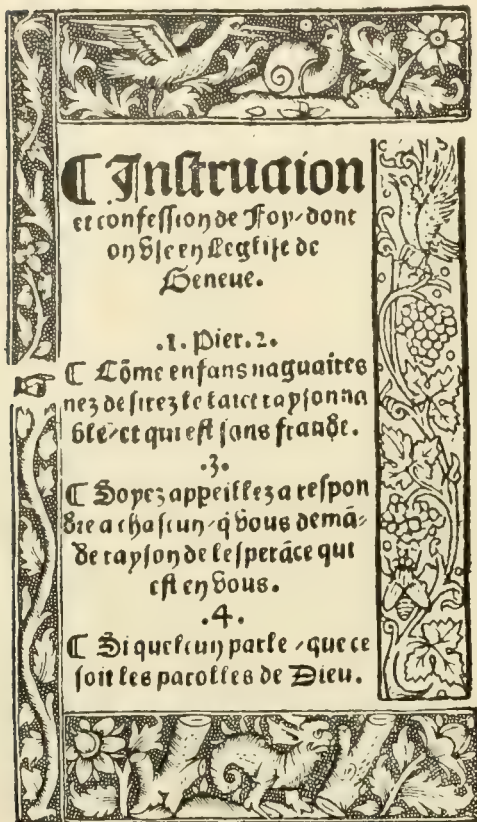 ¶ Instruction
et confession de Foy / dont
on vse en Leglise de
Geneue.
.1. Pier. 2.
¶ Cõme enfans naguaires
nez desirez le laict raysonna
ble / et qui est sans fraude.
.3.
¶ Soyez appeillez a respon
dre a chascun / q̃ vous demã-
de rayson de lesperãce qui
est en vous.
.4.
¶ Si quelcun parle / que ce
soit les parolles de Dieu.